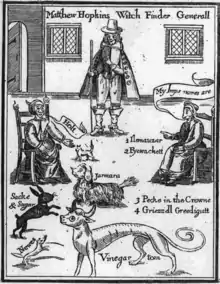 Matthew Hopkins Witch Finder Generall
My Imps names are
1 Ilemauzar
2 Pyewackett
Holt
Jarmara
Sacke
& Sugar
3 Pecke in the Crowne
4 Griezzell Greedigutt
Newes
Vinegar tom